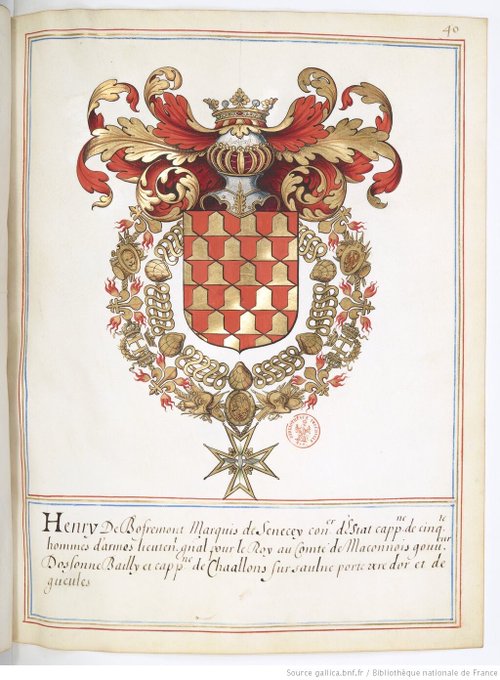 40
Henry De Bofremont Marquis de Senecey con.er d'Estat capp.ne de cinq.te
hommes d'armes lieuten.t gnal pour le Roy au Comté de Maconnois gouu.eur
Dossonne Bailly et capp.ne de Chaallons sur saulne porte vere d'or et de
gueules
Source gallica.bnf.fr / Bibliothèque nationale de France